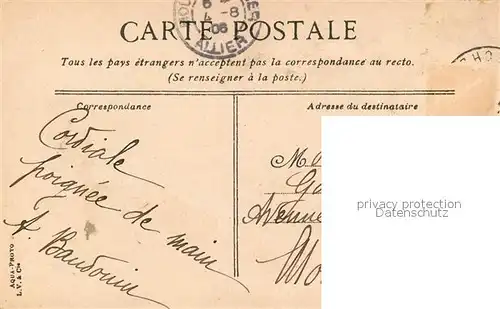 6
4 -8
06
ALLIER
CARTE POSTALE
Tous les pays étrangers n'acceptent pas la correspondance au recto.
(Se renseigner à la poste.)
Correspondance
Adresse du destinataire
Cordiale
poignée de main
A. Baudouin
Avenue
privacy protection
Datenschutz
AQUA-PHOTO
L.V. & Cie